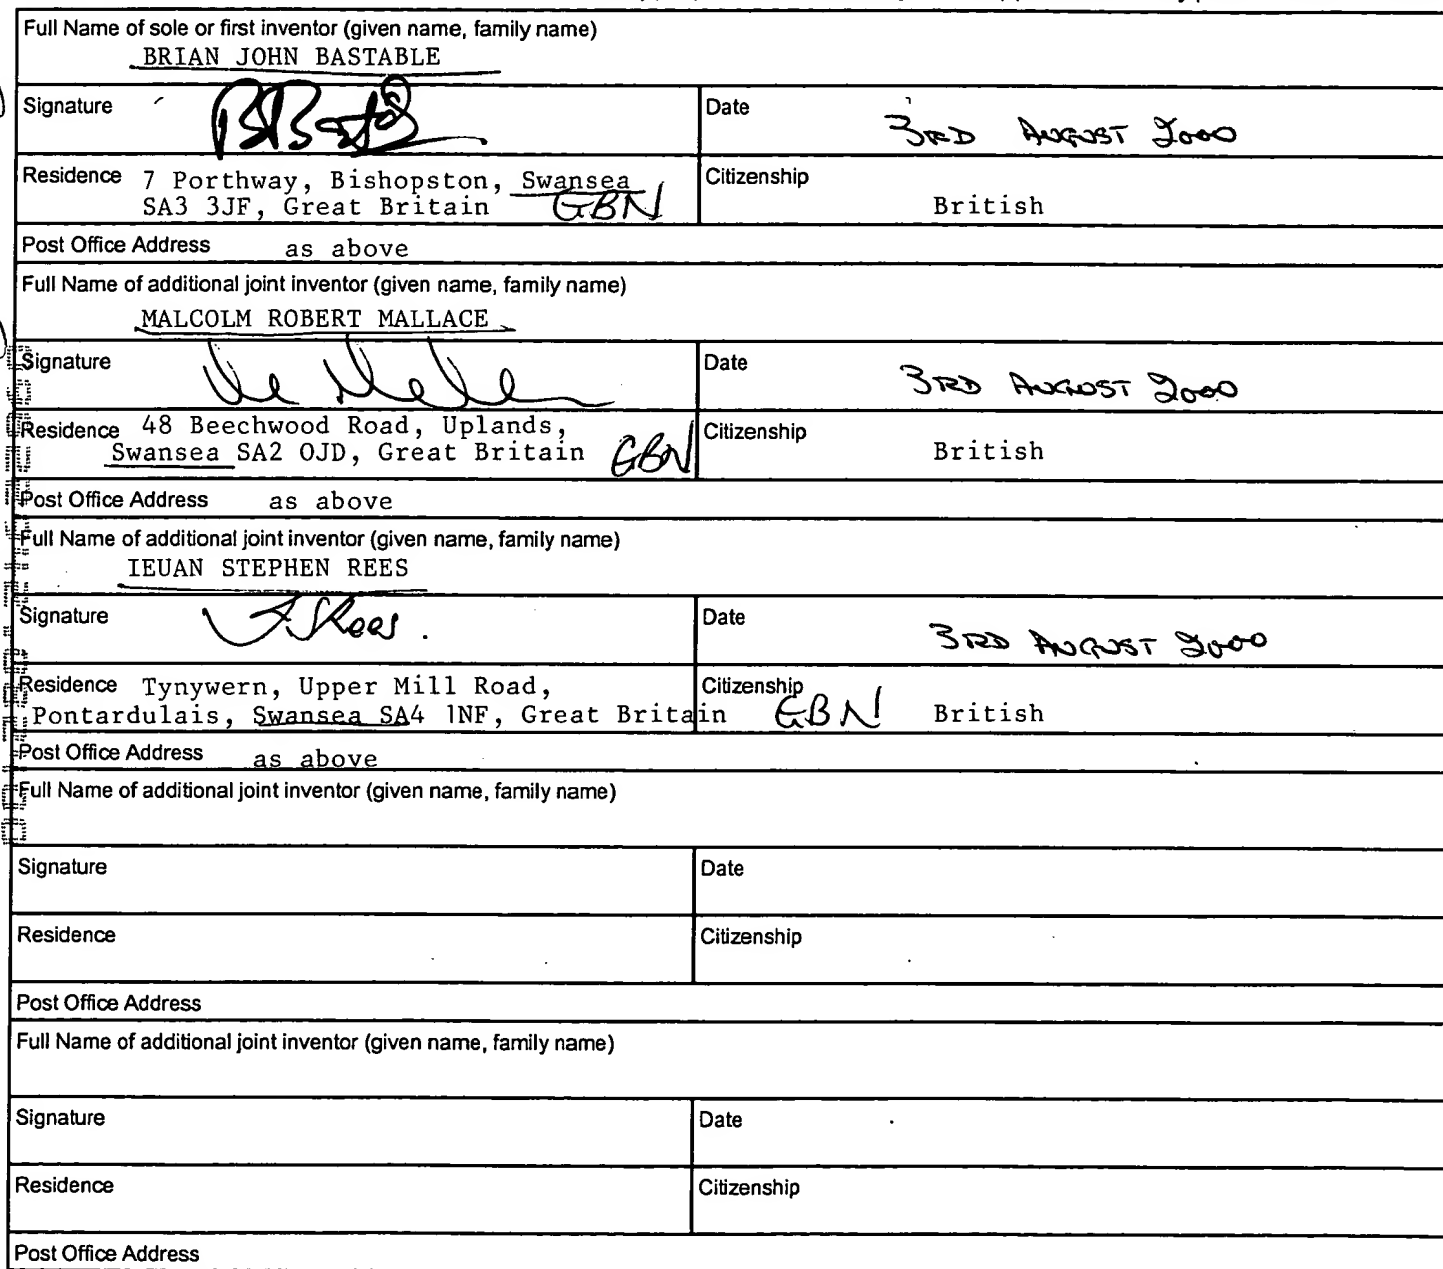 Full Name of sole or first inventor (given name, family name)
BRIAN JOHN BASTABLE
Signature
Date 3RD AUGUST 2000
Residence 7 Porthway, Bishopston, Swansea
SA3 3JF, Great Britain GBN
Citizenship
British
Post Office Address as above
Full Name of additional joint inventor (given name, family name)
MALCOLM ROBERT MALLACE
Signature
Date 3RD AUGUST 2000
Residence 48 Beechwood Road, Uplands,
Swansea SA2 OJD, Great Britain GBN
Citizenship
British
Post Office Address as above
Full Name of additional joint inventor (given name, family name)
IEUAN STEPHEN REES
Signature I S Rees.
Date 3RD AUGUST 2000
Residence Tynywern, Upper Mill Road,
Pontardulais, Swansea SA4 1NF, Great Britain GBN
Citizenship
British
Post Office Address as above
Full Name of additional joint inventor (given name, family name)
Signature
Date
Residence
Citizenship
Post Office Address
Full Name of additional joint inventor (given name, family name)
Signature
Date
Residence
Citizenship
Post Office Address